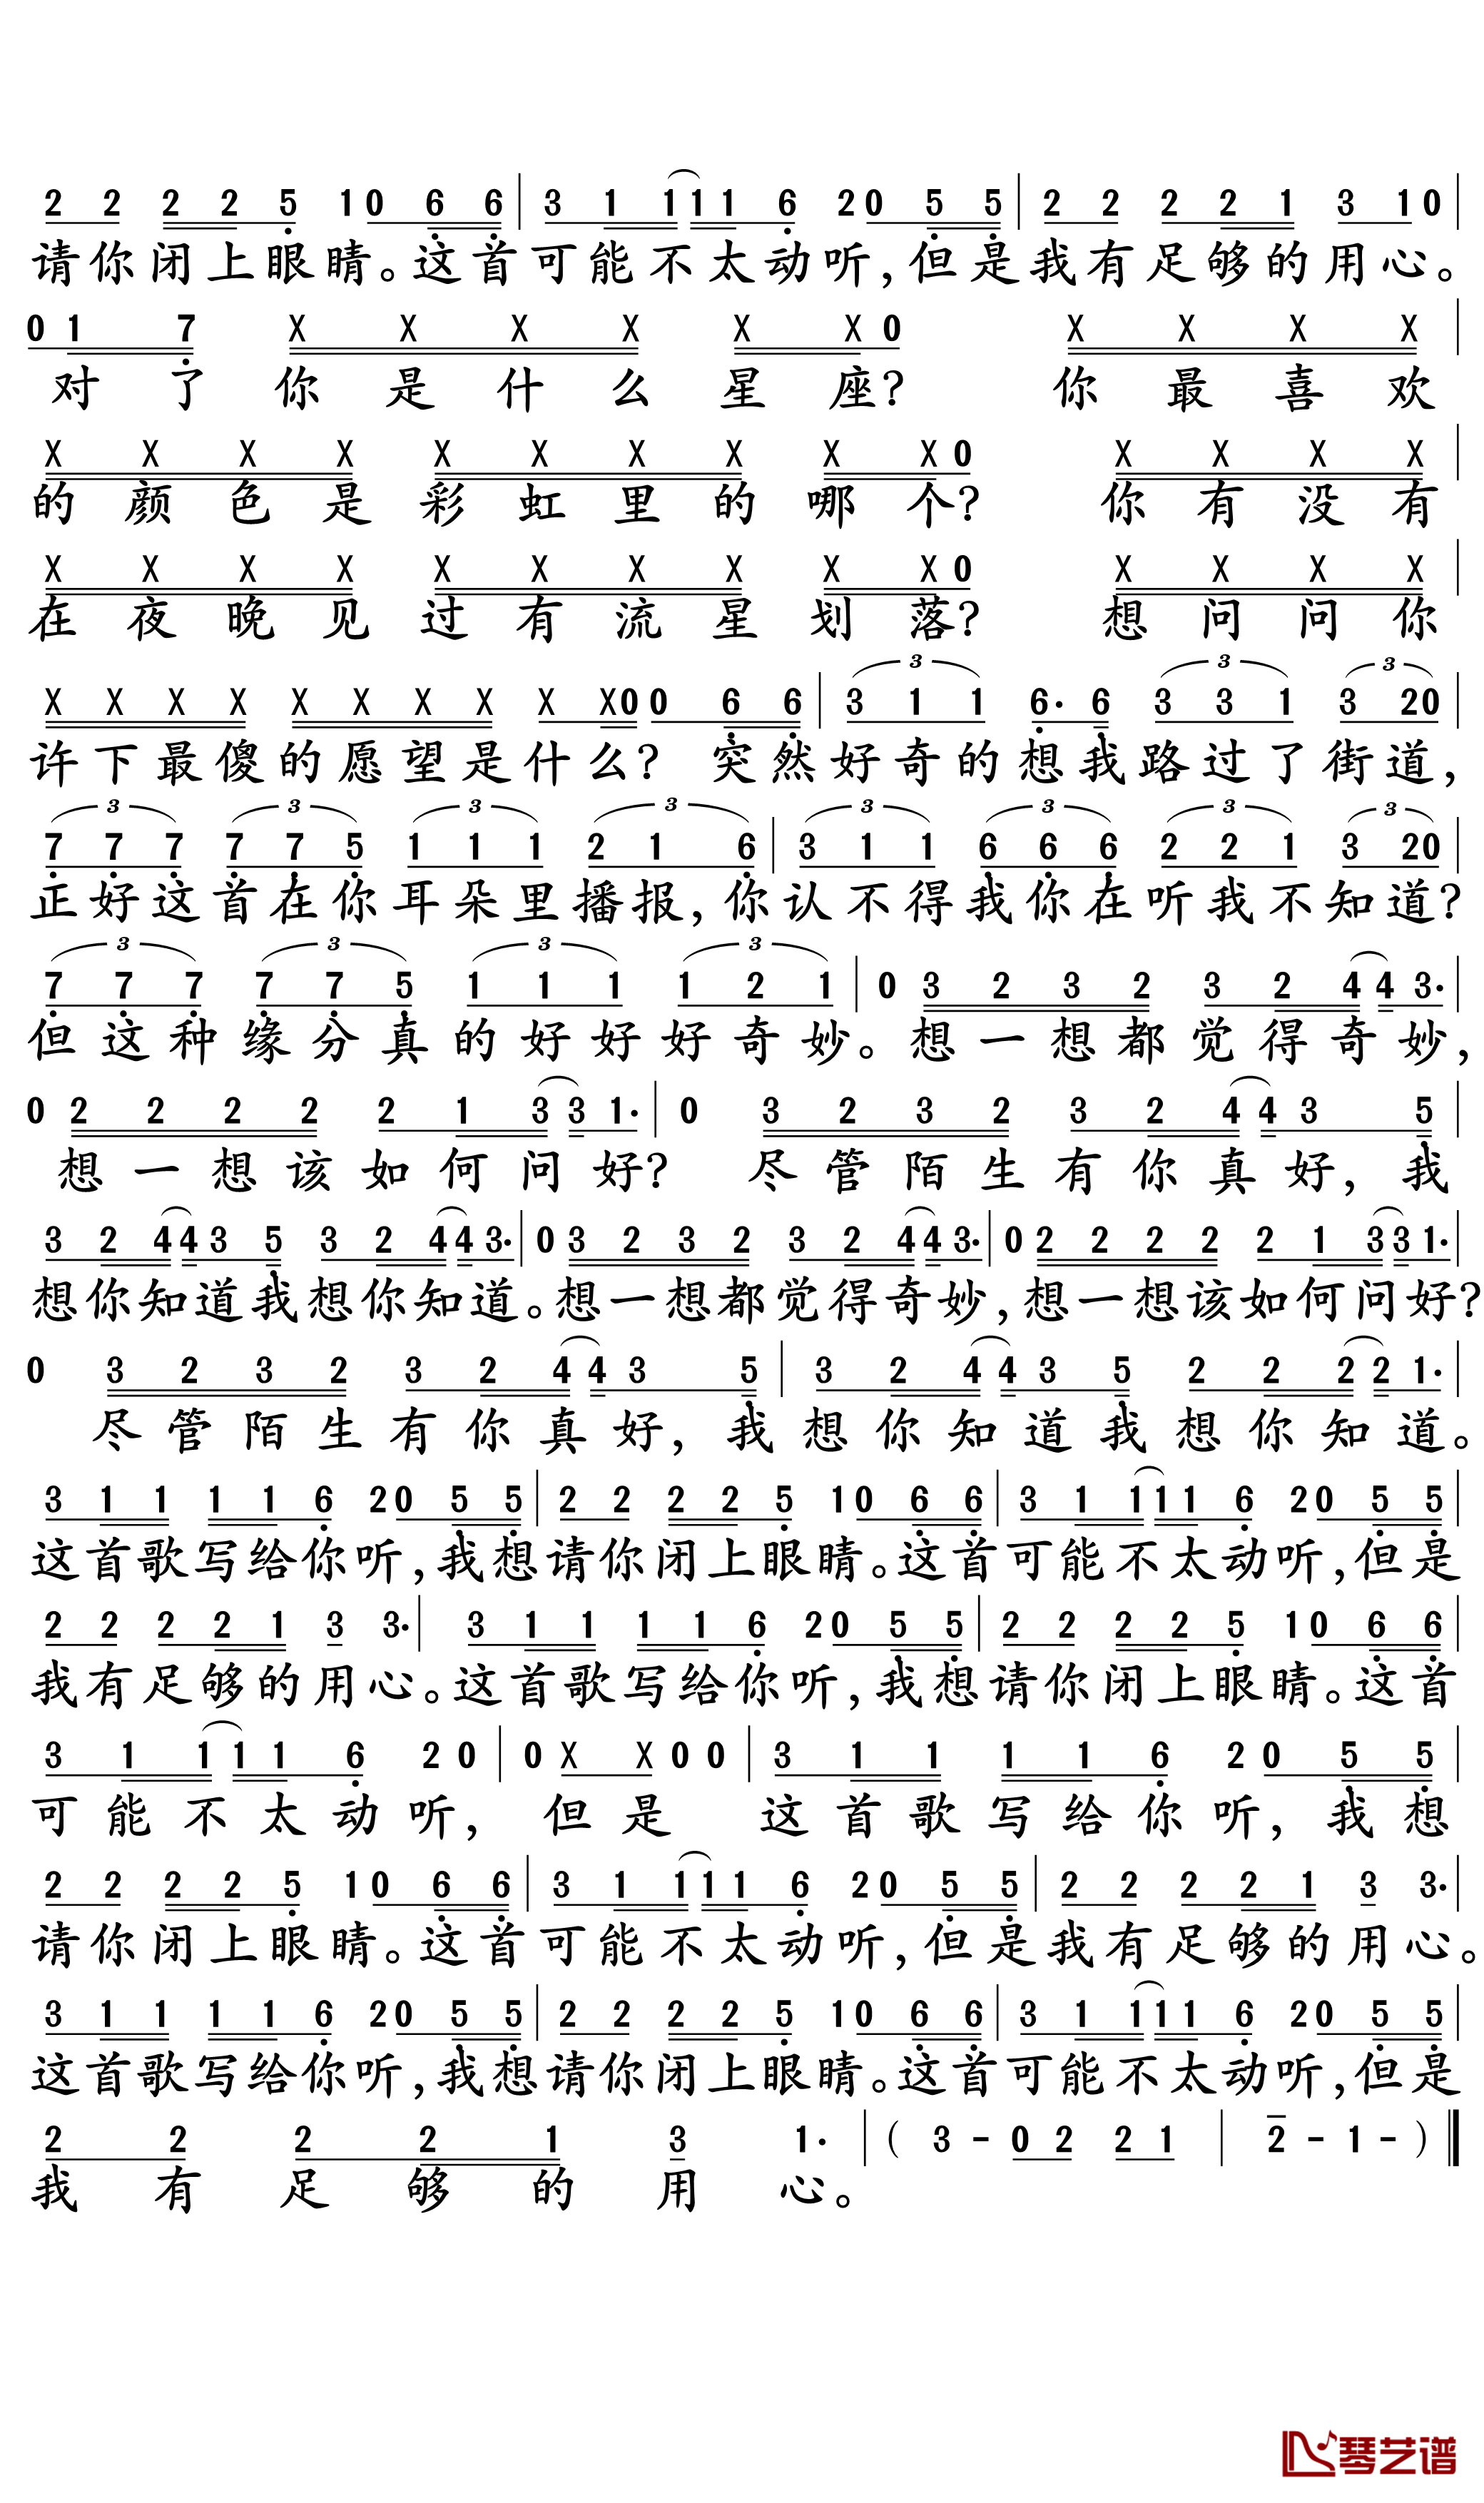 2 2 2 2 5 1 0 6 6 | 3 1 1 1 1 6 2 0 5 5 | 2 2 2 2 1 3 1 0 |
请你闭上眼睛。这首可能不太动听,但是我有足够的用心。
0 1 7 X X X X X X 0 X X X X |
对了你是什么星座? 你最喜欢
X X X X X X X X X X 0 X X X X |
的颜色是彩虹里的哪个? 你有没有
X X X X X X X X X X 0 X X X X |
在夜晚见过有流星划落? 想问问你
3 3 3
X X X X X X X X X X 0 0 6 6 | 3 1 1 6· 6 3 3 1 3 2 0 |
许下最傻的愿望是什么? 突然好奇的想我路过了街道,
3 3 3 3 3 3 3 3
7 7 7 7 7 5 1 1 1 2 1 6 | 3 1 1 6 6 6 2 2 1 3 2 0 |
正好这首在你耳朵里播报,你认不得我你在听我不知道?
3 3 3 3
7 7 7 7 7 5 1 1 1 1 2 1 | 0 3 2 3 2 3 2 4 4 3· |
但这种缘分真的好好好奇妙。想一想都觉得奇妙,
0 2 2 2 2 2 1 3 3 1· | 0 3 2 3 2 3 2 4 4 3 5 |
想一想该如何问好? 尽管陌生有你真好,我
3 2 4 4 3 5 3 2 4 4 3· | 0 3 2 3 2 3 2 4 4 3· | 0 2 2 2 2 2 1 3 3 1· |
想你知道我想你知道。想一想都觉得奇妙,想一想该如何问好?
0 3 2 3 2 3 2 4 4 3 5 | 3 2 4 4 3 5 2 2 2 2 1· |
尽管陌生有你真好,我想你知道我想你知道。
3 1 1 1 1 6 2 0 5 5 | 2 2 2 2 5 1 0 6 6 | 3 1 1 1 1 6 2 0 5 5 |
这首歌写给你听,我想请你闭上眼睛。这首可能不太动听,但是
2 2 2 2 1 3 3· | 3 1 1 1 1 6 2 0 5 5 | 2 2 2 2 5 1 0 6 6 |
我有足够的用心。这首歌写给你听,我想请你闭上眼睛。这首
3 1 1 1 1 6 2 0 | 0 X X 0 0 | 3 1 1 1 1 6 2 0 5 5 |
可能不太动听, 但是 这首歌写给你听,我想
2 2 2 2 5 1 0 6 6 | 3 1 1 1 1 6 2 0 5 5 | 2 2 2 2 1 3 3· |
请你闭上眼睛。这首可能不太动听,但是我有足够的用心。
3 1 1 1 1 6 2 0 5 5 | 2 2 2 2 5 1 0 6 6 | 3 1 1 1 1 6 2 0 5 5 |
这首歌写给你听,我想请你闭上眼睛。这首可能不太动听,但是
2 2 2 2 1 3 1· | ( 3 - 0 2 2 1 | 2 - 1 - ) ‖
我有足够的用心。
琴艺谱